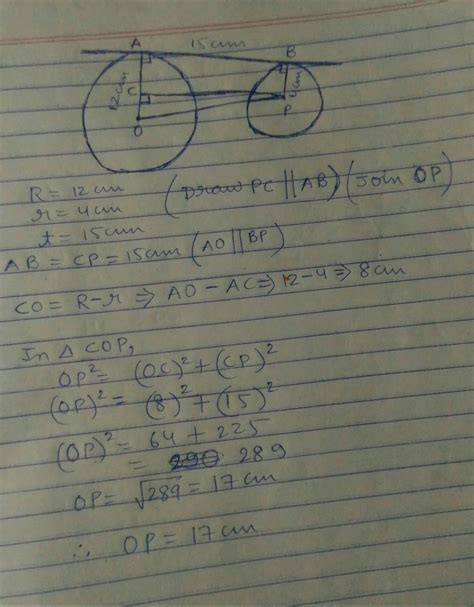 A 15cm B
12cm C 4cm
O P
R = 12 cm
r = 4 cm (Draw PC || AB) (Join OP)
t = 15cm
AB = CP = 15cm (AO || BP)
CO = R-r ⇒ AO - AC ⇒ 12-4 ⇒ 8cm
In Δ COP,
OP² = (OC)² + (CP)²
(OP)² = (8)² + (15)²
(OP)² = 64 + 225
= 289
OP = √289 = 17 cm
∴ OP = 17 cm